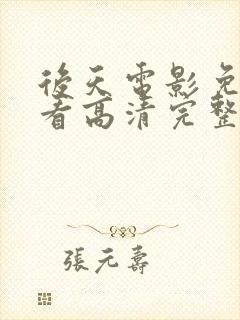 後天電影免
看高清完整
張元壽